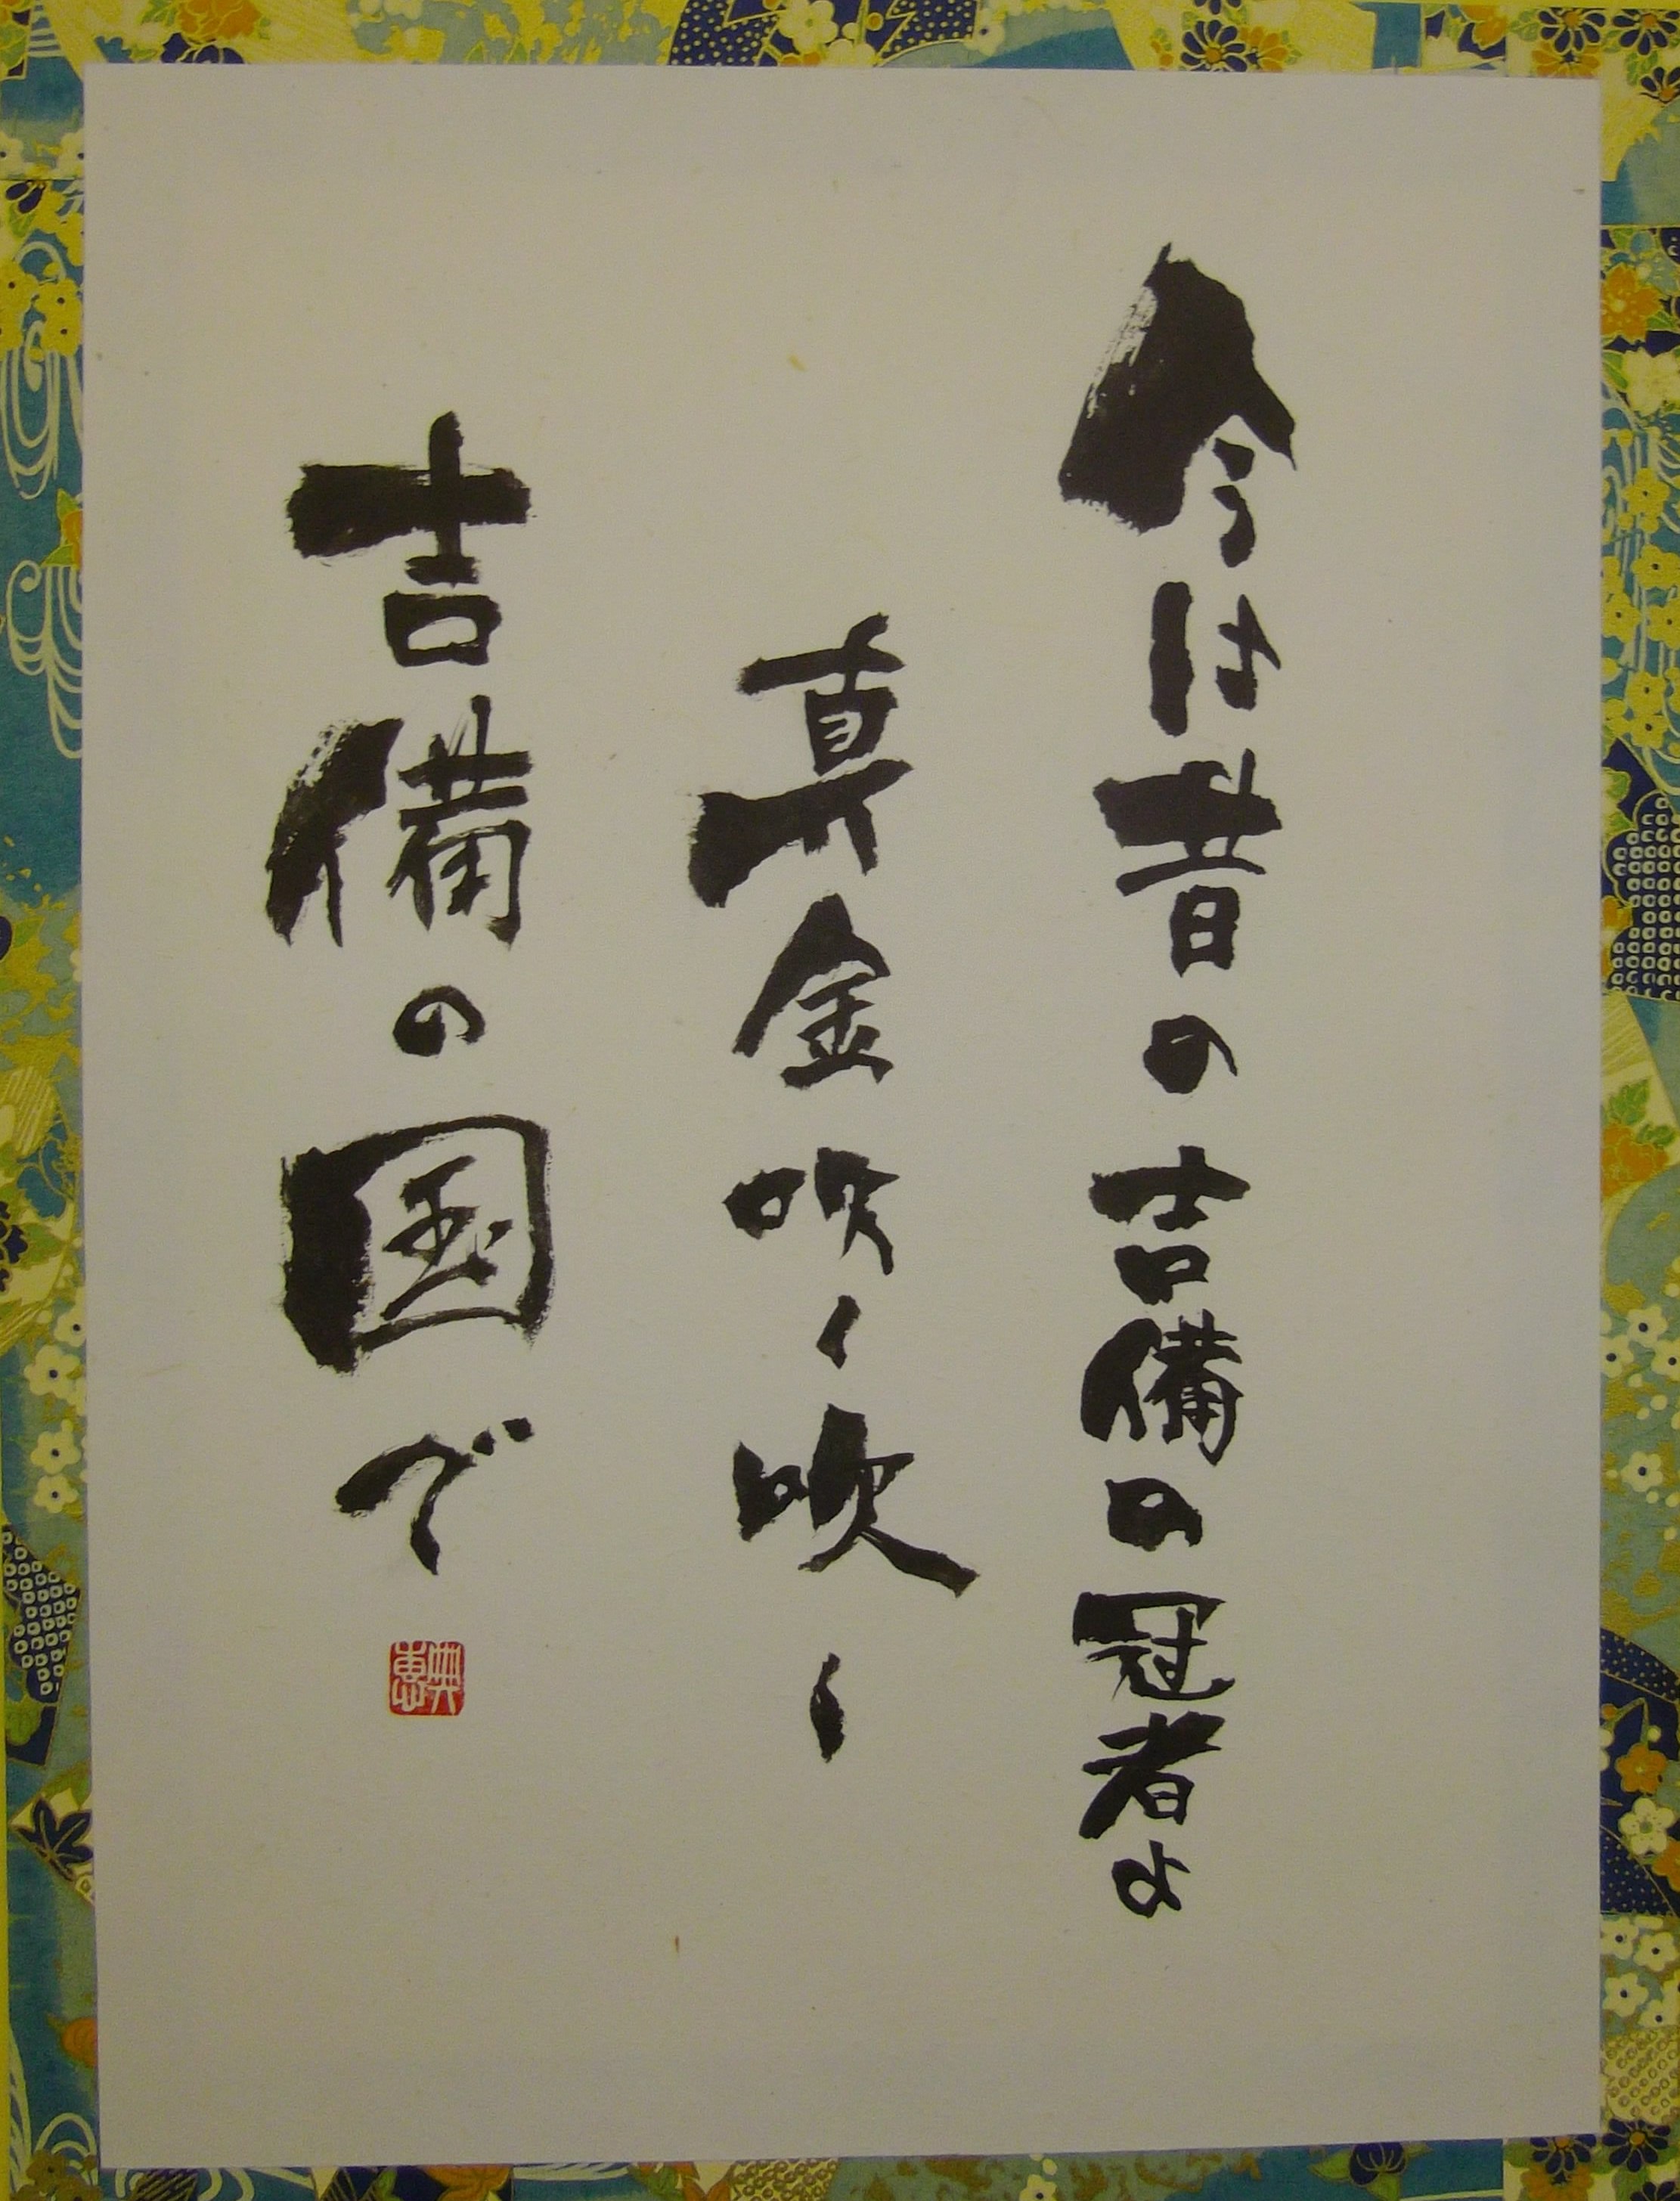 今は昔の吉備の冠者よ
真金吹く吹く
吉備の国で
典恵